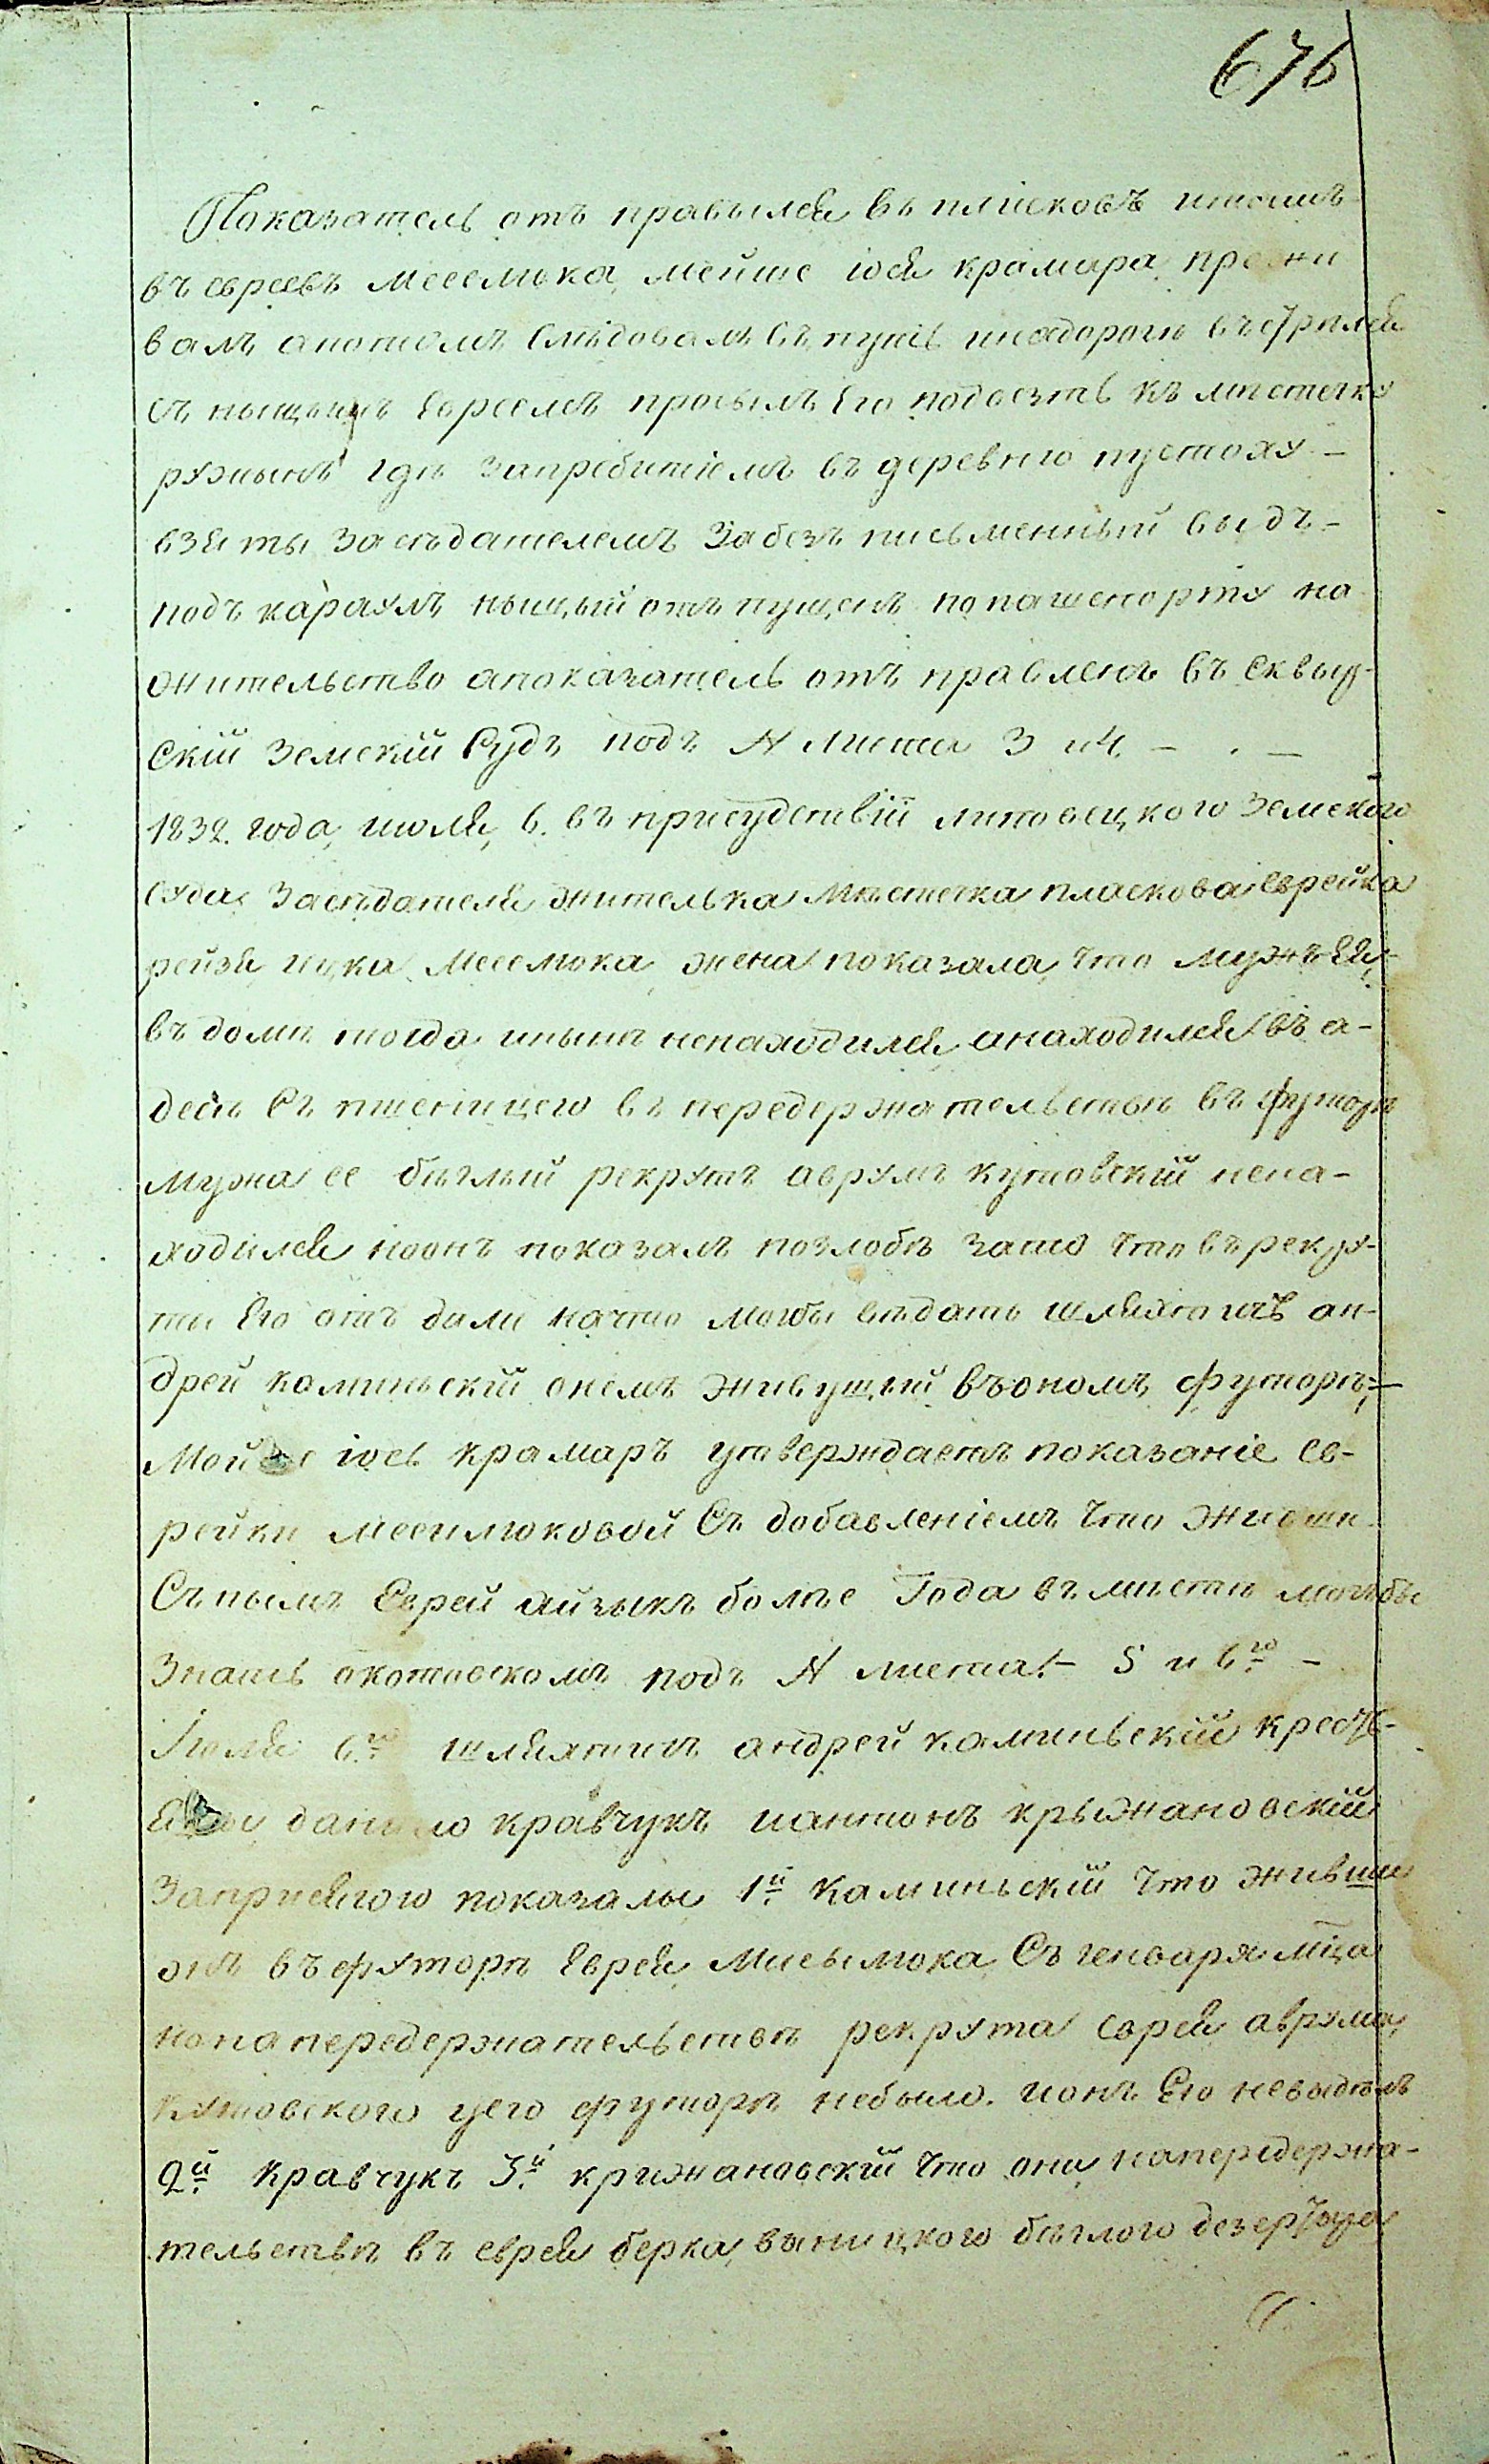 676
Показатель отъ правился въ плисковъ итамъ
въ евреевъ Меселюка, мейше іося крамара прожи
валъ апотомъ Следовалъ въ путь инадороги въстрился
съ ныщымъ Евреемъ просылъ Его подвезть къ местечку
ружынъ где запребитіемъ въ деревню пустоху —
взяты заседателемъ За безъ письменный выдъ —
подъ караулъ ныщый отъ пущенъ попашепорту на
жительство апоказатель отъ правленъ въ Сквыр-
Скій Земскій Судъ подъ № листа 3 и 4. —
1832. года, июля, 6. въ присудствіи липовецкого Земского
Суда Заседателя жителька Местечка плискова Еврейка
рейзя ицка Меселюка жена показала, что мужъ Ея,
въ доме тогда иныне ненаходился, анаходился въ а-
десе Съ пшеницею въ передержательстве въ футоре
мужа ее беглый рекрутъ аврумъ кутовскій нена-
ходился ноонъ показалъ позлобе зато что въ рекру-
ты Его отъ дали начто могбы ведать шляхтичъ ан-
дрей каминьскій онемъ живущый въономъ футоре, —
Мойше іось крамаръ утверждаетъ показаніе Ев-
рейки меселюковой Съ добавленіемъ что живши
Съ нымъ Еврей айзыкъ более Года въ месте могъбы
Знать окотовскомъ подъ № листа. — 5 и 6го —
Іюля 6го шляхтичъ андрей каминьскій крестъ-
данило кравчукъ иантонъ крыжановскій
Заприсягою показалы 1й Каминьскій что живши
онъ въ футоре Еврея Мисылюка, Съ генваря мца
нонапередержательстве рекрута еврея аврума
кутовского уего футоре небыло. ионъ Его невыделъ
2й Кравчукъ 3й крижановскій что они напередержа-
тельстве въ еврея берка, выницкого беглого дезертыра